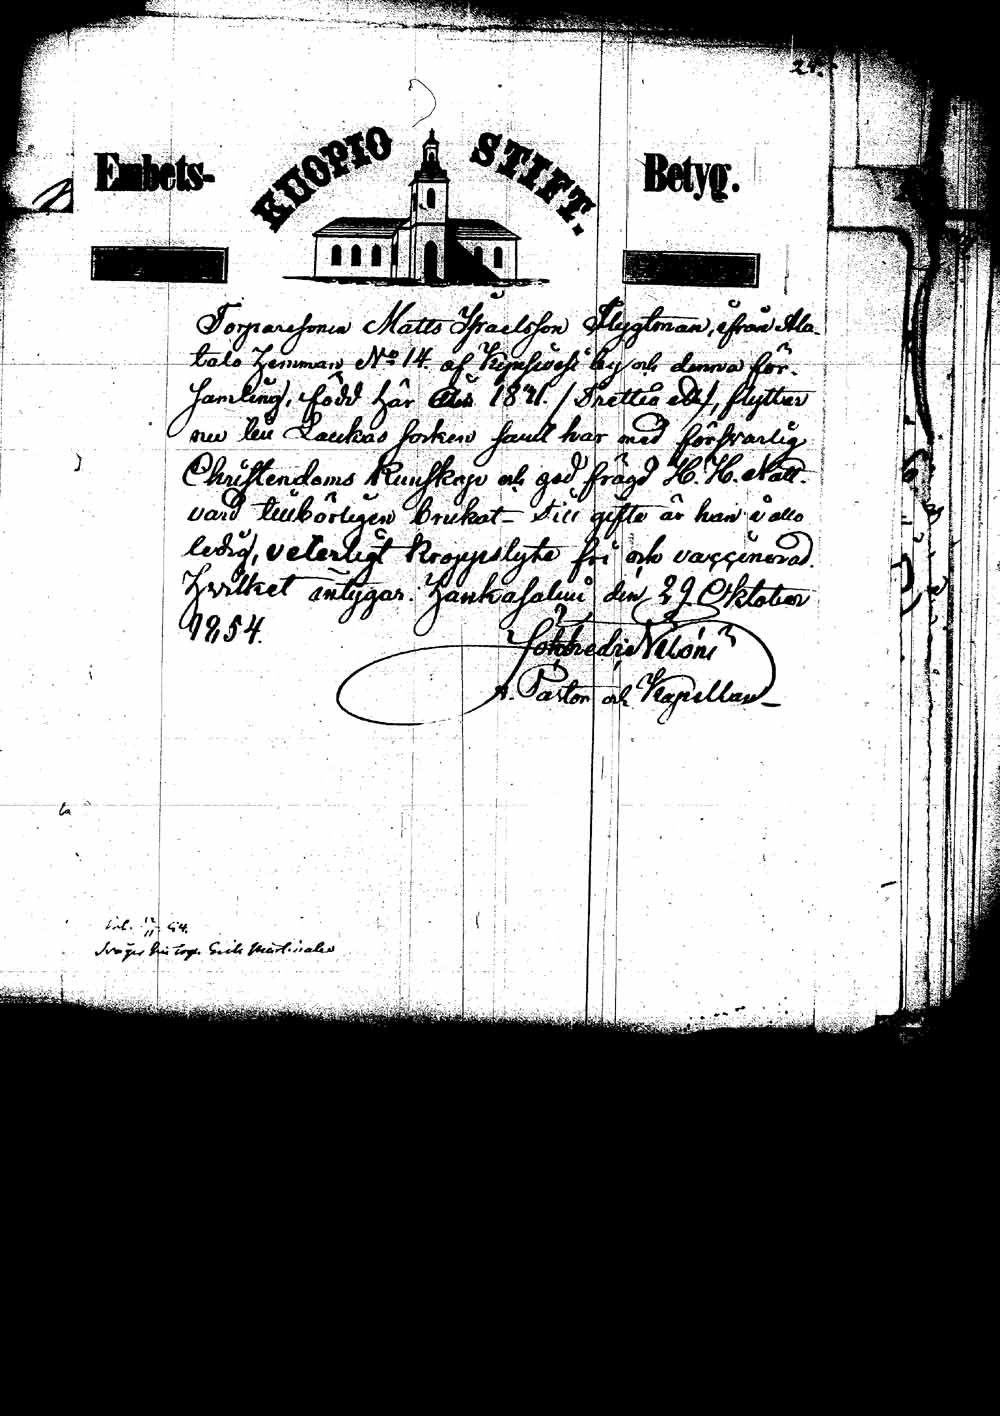 24.
Embets-
KUOPIO STIFT.
Betyg.
Torparesonen Matts Israelsson Flygtman, ifrån Ala-
talo Hemman No 14. af Kynsivesi by och denna för-
samling, född här 1821. /Trettio ett/, flyttar
nu till Laukas socken samt har med försvarlig
Christendoms Kunskap och god frägd H. H. Natt-
vard tillbörligen brukat – Till gifte är han i allo
ledig, veterligt kroppslyte fri och vaccinerad.
Hvilket intygar. Hankasalmi den 29 Oktober
1854.
A. Pastor och Kapellan
54.
Erik